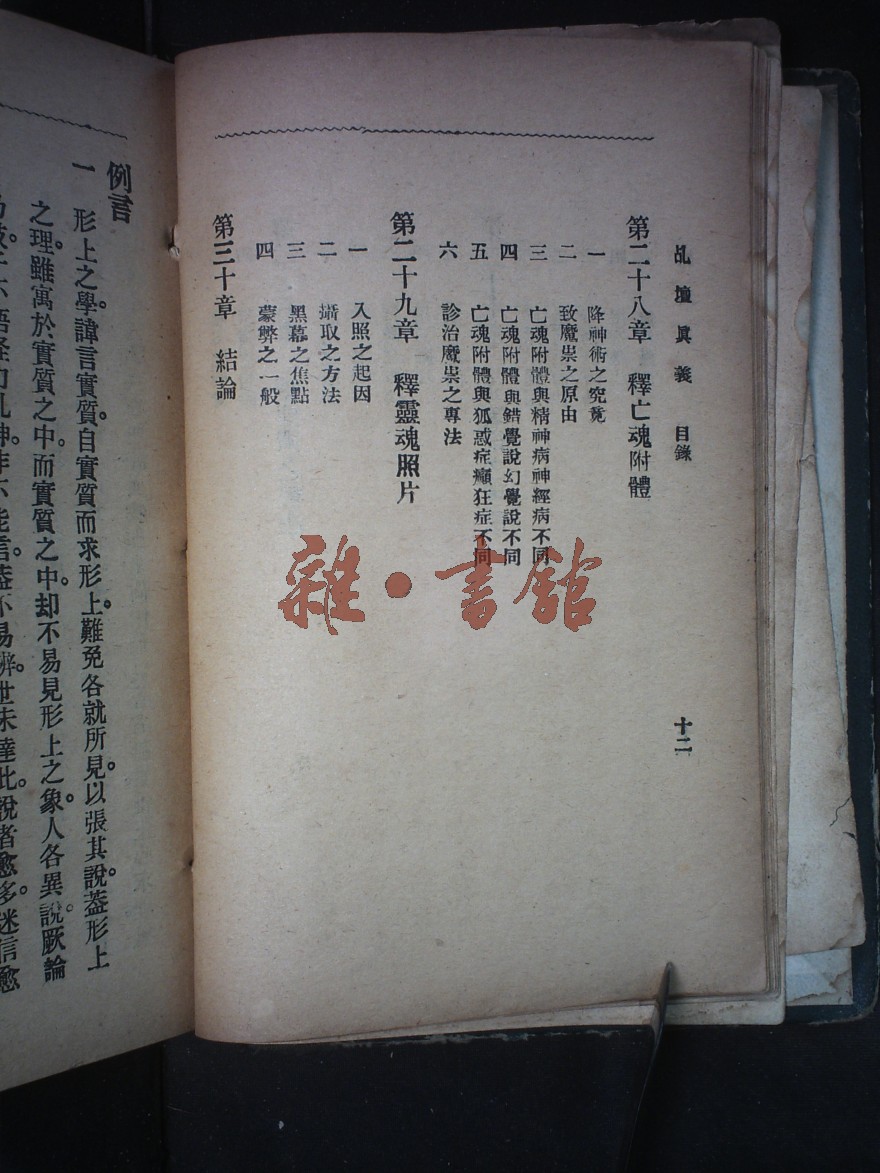 乩壇眞義 目錄 十二
第二十八章 釋亡魂附體
一 降神術之究竟
二 致魔祟之原由
三 亡魂附體與精神病神經病不同
四 亡魂附體與錯覺說幻覺說不同
五 亡魂附體與狐惑症癲狂症不同
六 診治魔祟之專法
第二十九章 釋靈魂照片
一 入照之起因
二 攝取之方法
三 黑幕之焦點
四 蒙弊之一般
第三十章 結論
雜·書館
例言
一 形上之學。諱言實質。自實質而求形上。難免各就所見。以張其說。蓋形上
之理。雖寓於實質之中。而實質之中。却不易見形上之象。人各異說。厥論
能言。蓋不易辨。世未達此說者愈多。迷信愈